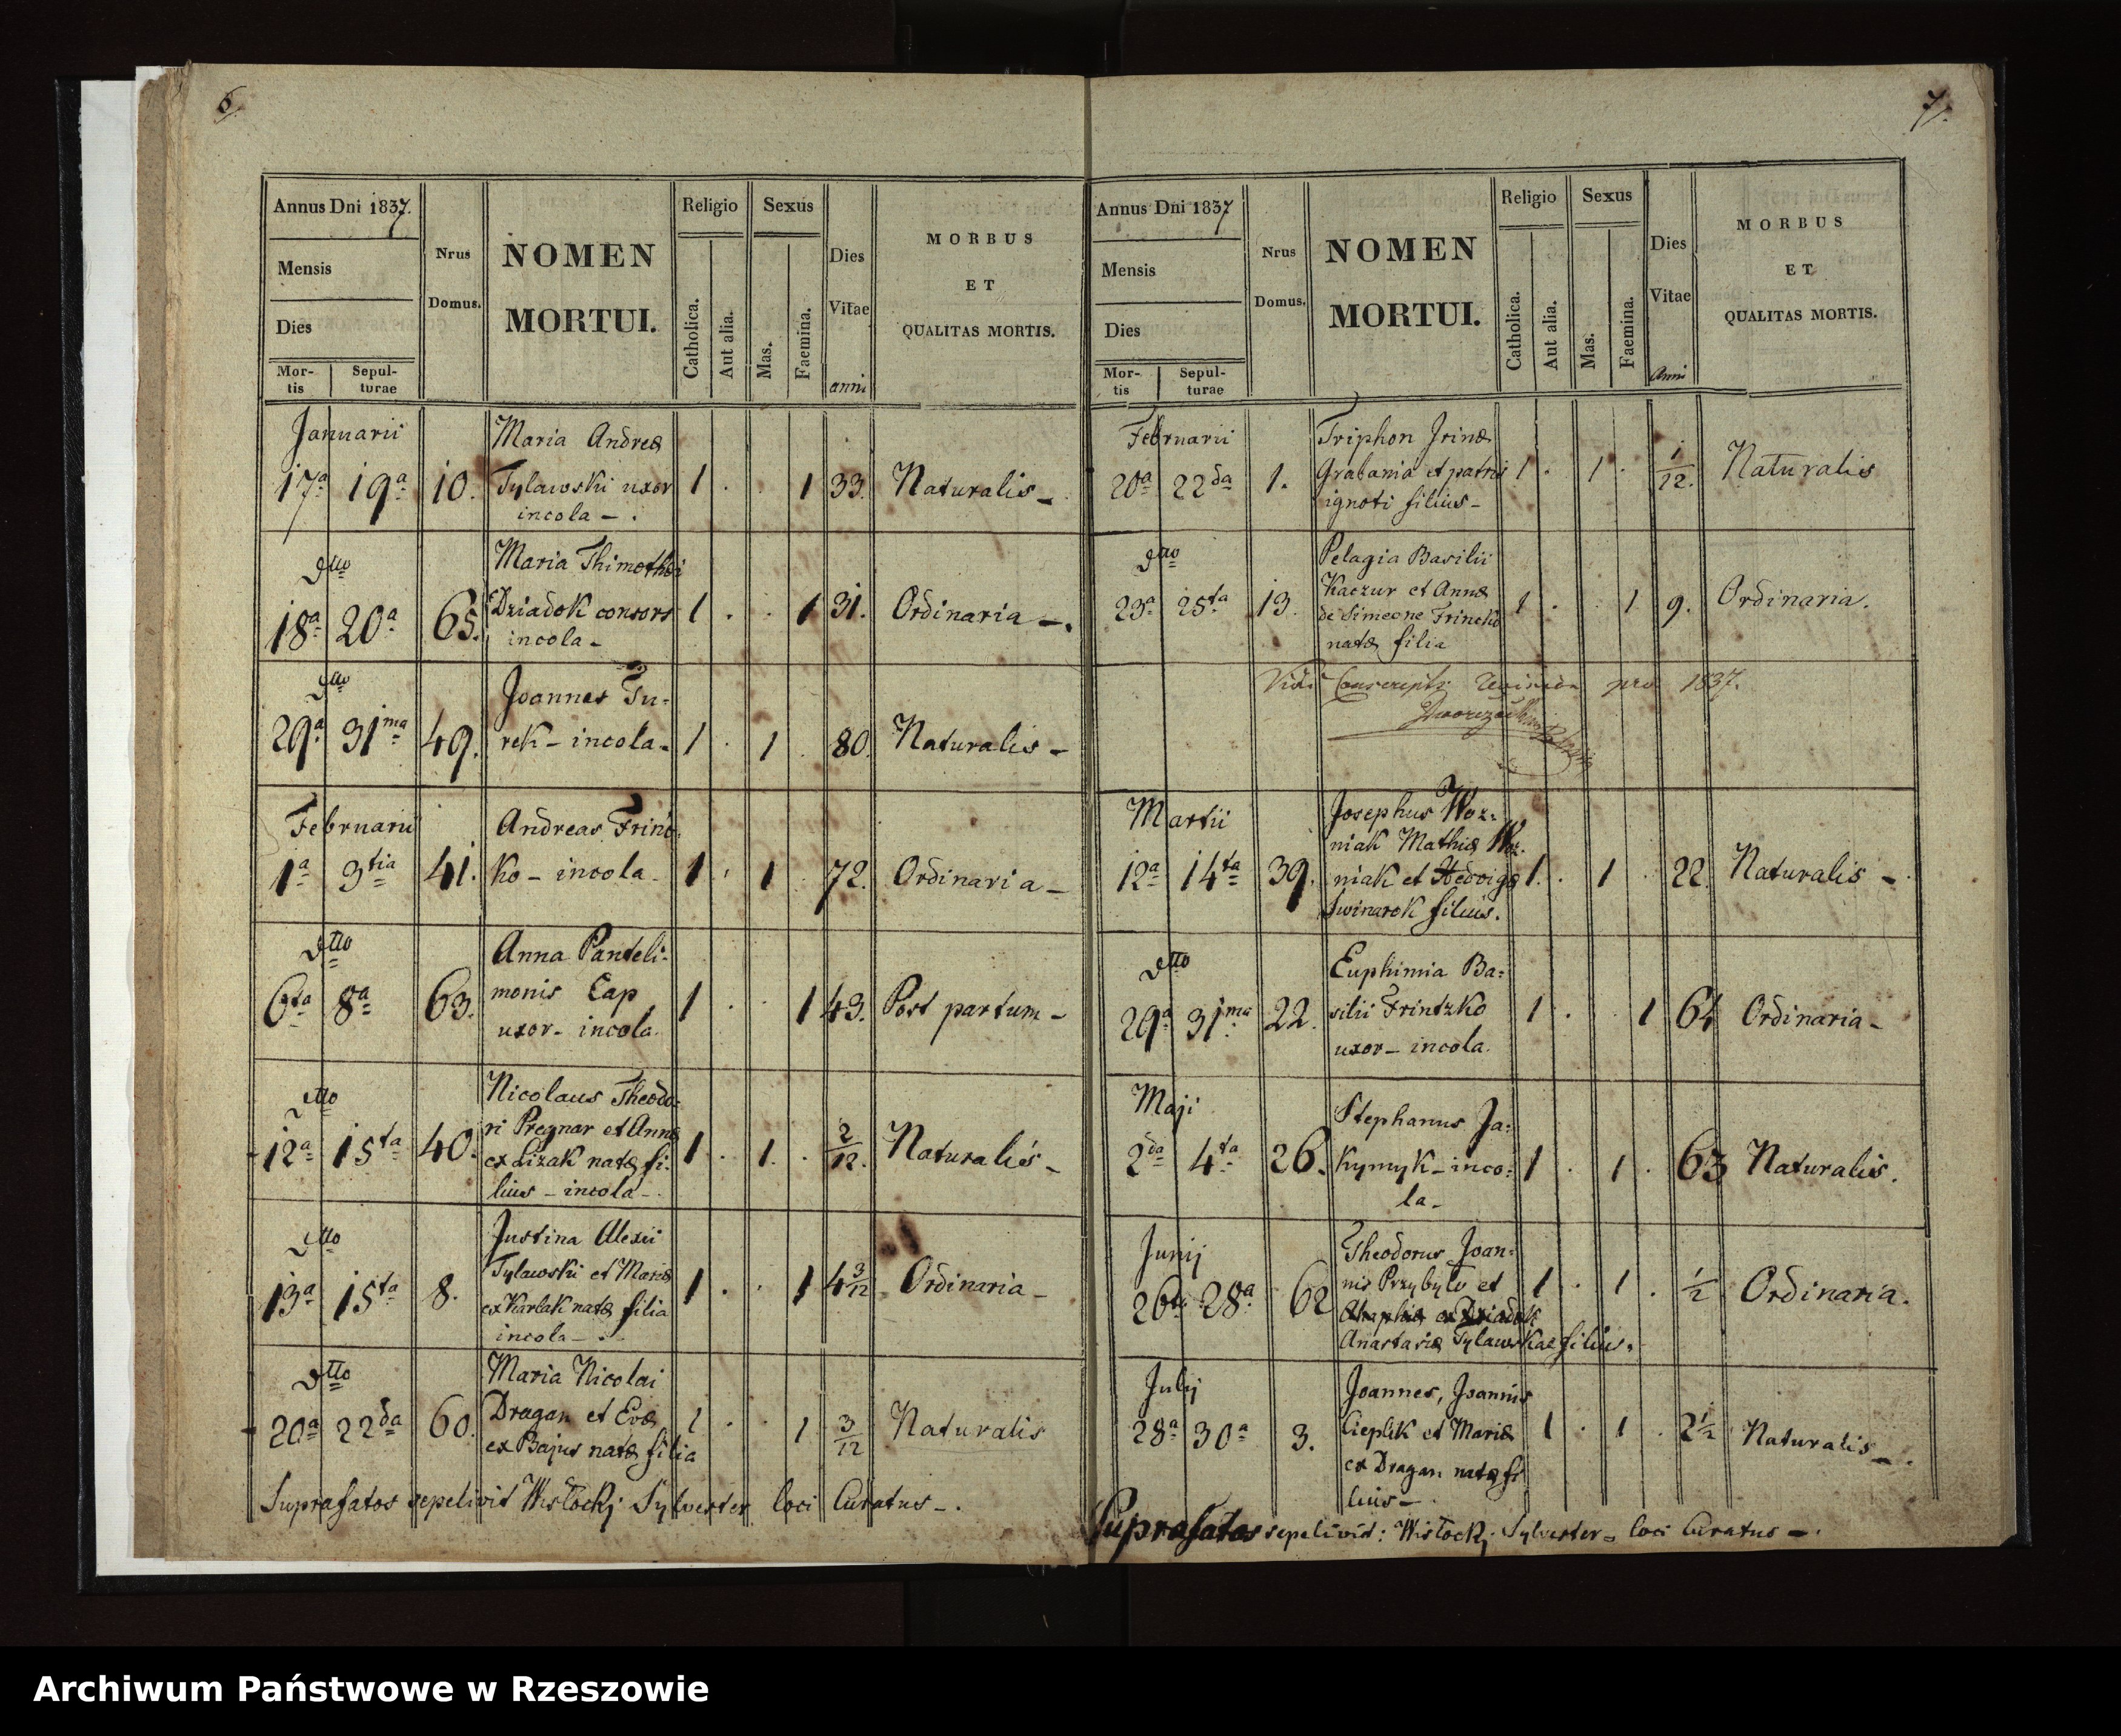 6.
Annus Dni 1837.
Mensis
Dies
Mor-
tis
Sepul-
turae
Nrus
Domus.
NOMEN
MORTUI.
Religio
Catholica.
Aut alia.
Sexus
Mas.
Faemina.
Dies
Vitae
anni
MORBUS
ET
QUALITAS MORTIS.
Januarii
17a 19a 10. 1 . . 1 33. Naturalis –
Maria Andreæ
Tylawski uxor
incola – .
Dtto
18a 20a 65. 1 . . 1 31. Ordinaria – .
Maria Thimothei
Dziadok consors
incola –
Dtto
29a 31ma 49. 1 . 1 . 80 Naturalis –
Joannes Tu-
rek – incola –
Februarii
1a 3tia 41. 1 . 1 . 72. Ordinaria –
Andreas Frinc-
ko – incola –
Dtto
6ta 8a 63. 1 . . 1 43. Post partum –
Anna Panteli-
monis Cap
uxor – incola.
Dtto
12a 15ta 40. 1 . 1 . 2/12. Naturalis –
Nicolaus Theodo-
ri Pregnar et Annæ
ex Lizak natæ fi-
lius – incola – .
Dtto
13a 15ta 8. 1 . . 1 4 3/12 Ordinaria –
Justina Alexii
Tylawski et Mariæ
ex Karlak natæ filia
incola – .
Dtto
20a 22da 60. 1 . . 1 3/12 Naturalis
Maria Nicolai
Dragan et Evæ
ex Bajus natæ filia
Suprafatos sepelivit Wisłockj Sylvester loci Curatus – .
7.
Annus Dni 1837
Mensis
Dies
Mor-
tis
Sepul-
turae
Nrus
Domus.
NOMEN
MORTUI.
Religio
Catholica.
Aut alia.
Sexus
Mas.
Faemina.
Dies
Vitae
Anni
MORBUS
ET
QUALITAS MORTIS.
Februarii
20a 22da 1. 1 . 1 . 1/12. Naturalis
Triphon Irinæ
Grabania et patris
ignoti filius –
Dtto
23a 25ta 13. 1 . . 1 9. Ordinaria.
Pelagia Basilii
Kaczur et Annæ
de Simeone Frincko
natæ filia
Vidi pro 1837.
Martii
12a 14ta 39. 1. . 1 . 22. Naturalis – .
Josephus Woz-
niak Mathiæ Woz-
niak et Hedvigæ
Swinarok filius.
Dtto
29a 31ma 22. 1 . . 1 64 Ordinaria –
Euphimia Ba-
silii Frintzko
uxor – incola.
Maji
2da 4ta 26. 1 . 1 . 63 Naturalis.
Stephanus Ja-
kymyk – inco-
la –
Junij
26ta 28a 62 1 . 1 . 1/2 Ordinaria.
Theodorus Joan-
nis Przybyło et
Anastasiæ Tylawskae filius.
Julij
28a 30a 3. 1 . 1 . 2 1/2 Naturalis – .
Joannes, Joannis
Cieplik et Mariæ
ex Dragan natæ fi
lius – .
Suprafatos sepelivit: Wisłockj Sylvester – loci Curatus – .
Archiwum Państwowe w Rzeszowie